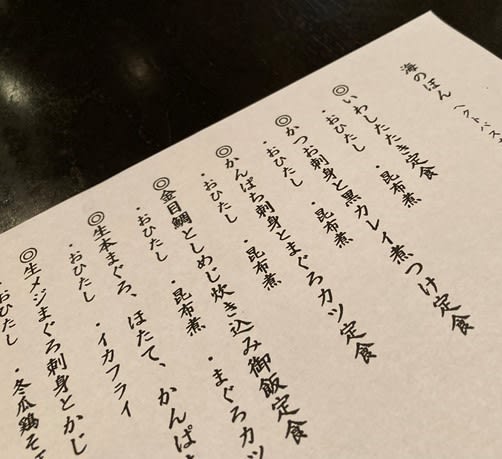 海のぽん
ヘクトパス
◎いわしたたき定食
・おひたし ・昆布煮
◎かつお刺身と黒カレイ煮つけ定食
・おひたし ・昆布煮
◎かんぱち刺身とまぐろカツ定食
・おひたし ・昆布煮
◎金目鯛としめじ炊き込み御飯定食
・おひたし ・昆布煮 ・まぐろカツ
◎生本まぐろ、ほたて、かんぱ
・おひたし ・イカフライ
◎生メジまぐろ刺身とかじ
・おひたし ・冬瓜鶏そ